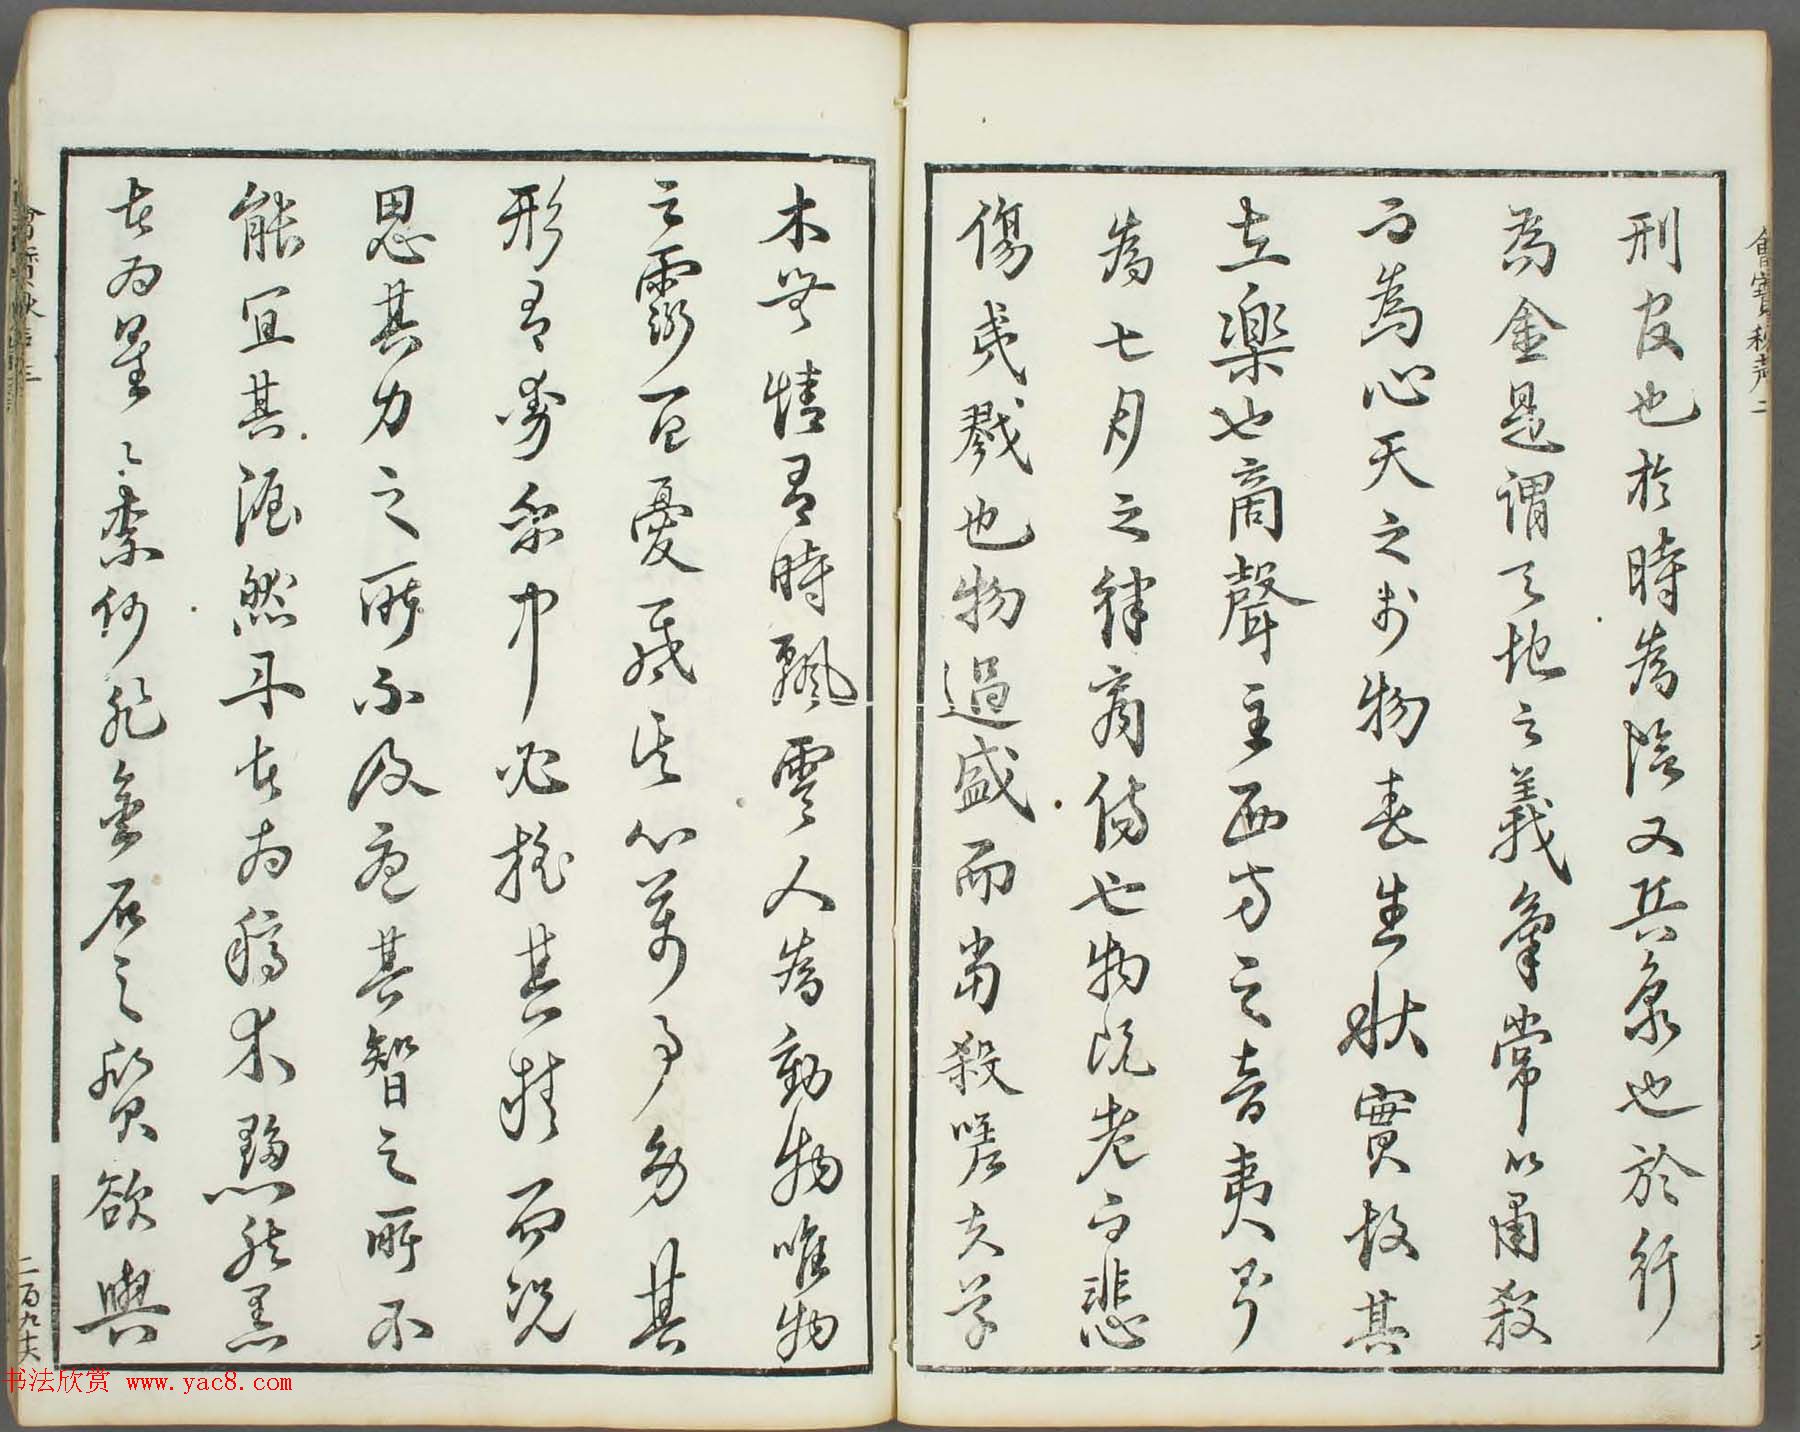 刑官也於時為陰又兵象也於行
為金是謂天地之義氣常以肅殺
而為心天之於物春生秋實故其
在樂也商聲主西方之音夷則
為七月之律商傷也物既老而悲
傷夷戮也物過盛而當殺嗟夫草
木無情有時飄零人為動物唯物
之靈百憂感其心萬事勞其
形有動乎中必搖其精而況
思其力之所不及憂其智之所不
能宜其渥然丹者為槁木黟然黑
者為星〻奈何非金石之質欲與
二百九十六
书法欣赏 www.yac8.com